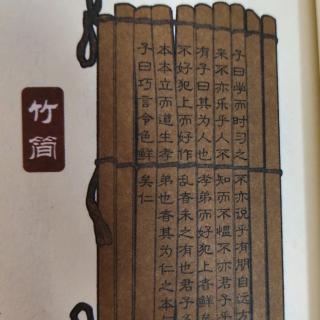 子曰学而时习之不亦说乎有朋自远方
来不亦乐乎人不知而不愠不亦君子乎
有子曰其为人也孝弟而好犯上者鲜矣
不好犯上而好作乱者未之有也君子
本本立而道生孝弟也者其为仁之本
子曰巧言令色鲜矣仁
竹简